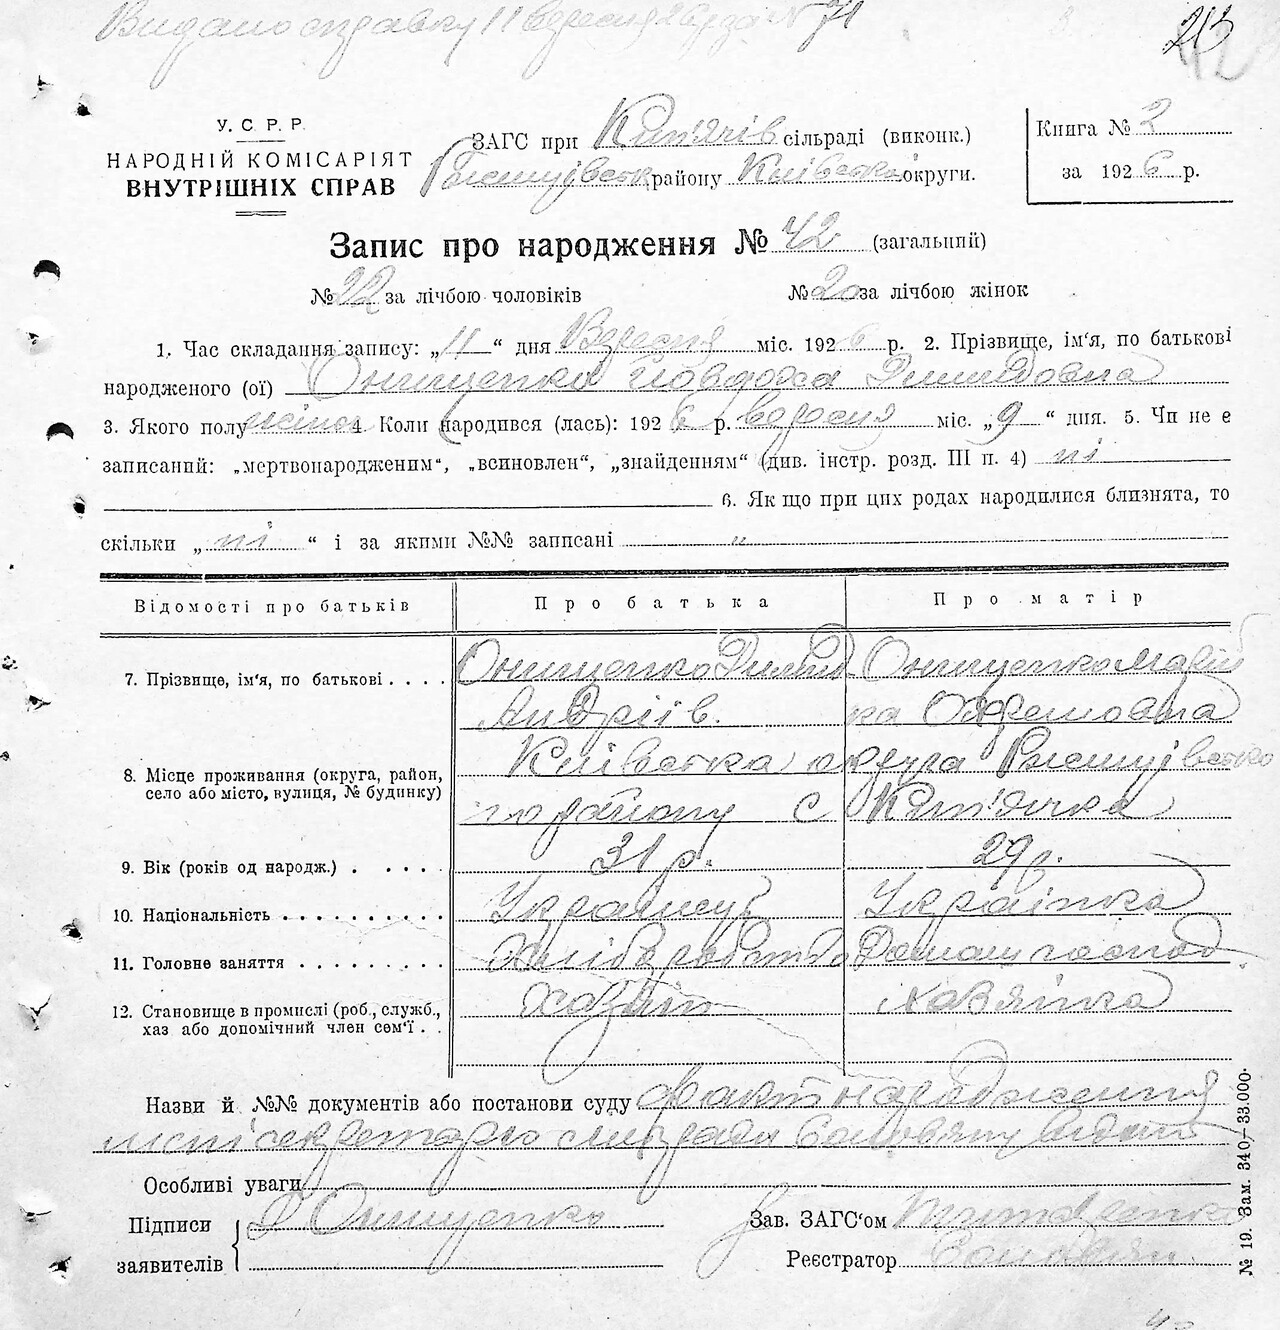 Видано справку 11 вересня 26 года № 71
213
У. С. Р. Р.
НАРОДНІЙ КОМІСАРІЯТ
ВНУТРІШНІХ СПРАВ
ЗАГС при Кип'ячів сільраді (виконк.)
Ржищівськ району Київської округи.
Книга № 2
за 1926 р.
Запис про народження № 42 (загальний)
№ 22 за лічбою чоловіків № 20 за лічбою жінок
1. Час складання запису: „11“ дня Вересня міс. 1926 р. 2. Прізвище, ім'я, по батькові
народженого (ої) Онищенко Йовдоха Демидовна
3. Якого полу жіноч 4. Коли народився (лась): 1926 р. вересня міс. „9“ дня. 5. Чи не є
записаний: „мертвонародженим“, „всиновлен“, „знайденням“ (див. інстр. розд. III п. 4) ні
6. Як що при цих родах народилися близнята, то
скільки „ні“ і за якими №№ записані „
Відомості про батьків Про батька Про матір
7. Прізвище, ім'я, по батькові . . . . Онищенко Демид Онищенко Марій
Андріїв. ка
8. Місце проживання (округа, район, Київська округа Ржищівсько
село або місто, вулиця, № будинку) го району с Кип'ячка
9. Вік (років од народж.) . . . . . 31 р. 29 р.
10. Національність . . . . . . . . . . Українець Українка
11. Головне заняття . . . . . . . . . Хліборобство Домаш господ.
12. Становище в промислі (роб., служб., Хазяїн Хазяїнка
хаз або допомічний член сем'ї . .
Назви й №№ документів або постанови суду факт народження
секретарю сільради відом
Особливі уваги
Підписи Д Онищенко Зав. ЗАГС'ом
заявителів Реєстратор
№ 19. Зам. 340—33.000.